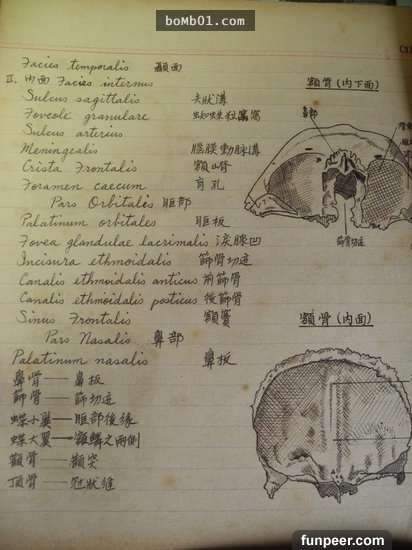 bomb01.com
Facies temporalis 顳面
II. 內面 Facies internus
Sulcus sagittalis 矢狀溝
Foveole granulare 蜘蛛狀窩
Sulcus arterius
Meningealis 腦膜動脈溝
Crista Frontalis 額嵴
Foramen caecum 盲孔
Pars Orbitales 眶部
Palatinum orbitales 眶板
Fovea glandulae lacrimalis 淚腺凹
Incisura ethmoidalis 篩骨切迹
Canalis ethmoidalis anticus 前篩骨
Canalis ethmoidalis posticus 後篩骨
Sinus Frontalis 額竇
Pars Nasalis 鼻部
Palatinum nasalis 鼻板
鼻骨——鼻板
篩骨——篩切迹
蝶小翼——眶部後緣
蝶大翼——額鱗之兩側
顴骨——顴突
頂骨——冠狀縫
額骨(內下面)
鼻部
篩骨切迹
額骨(內面)
funpeer.com